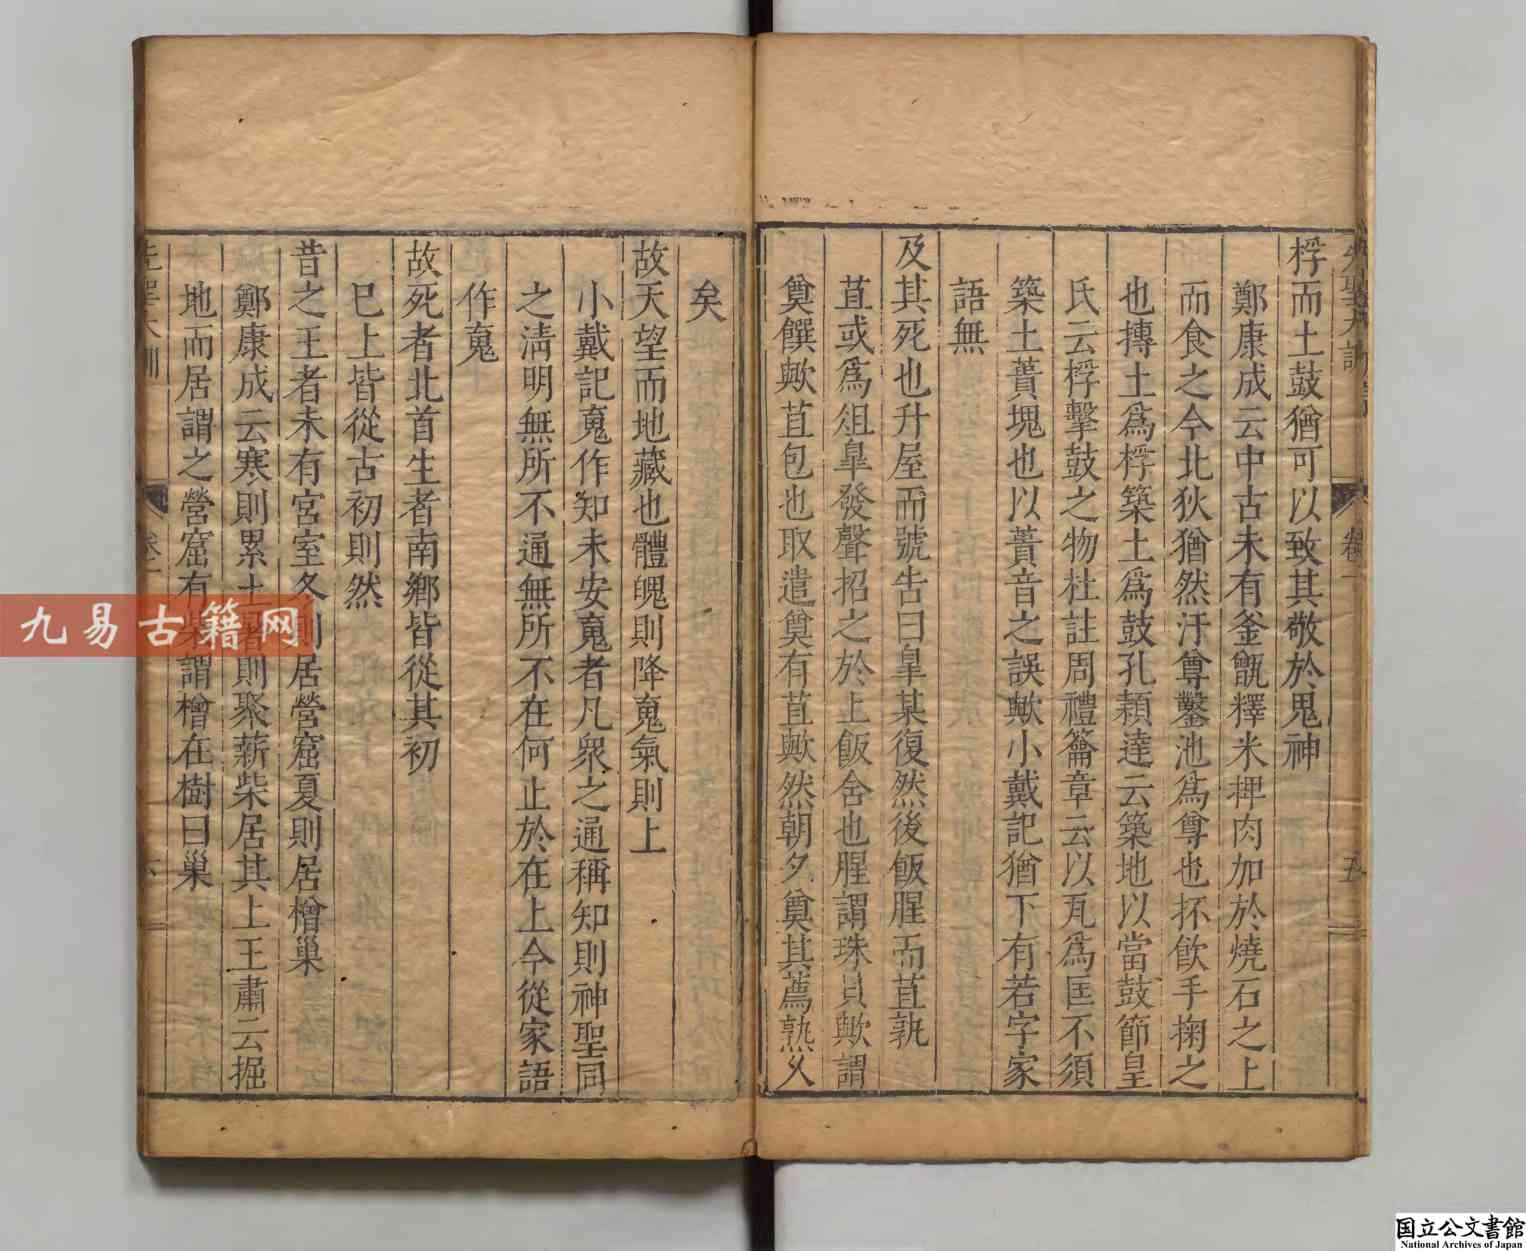 先聖大訓
卷一
五
桴而土鼓猶可以致其敬於鬼神
鄭康成云中古未有釜甑釋米捭肉加於燒石之上
而食之今北狄猶然汙尊鑿池爲尊也抔飲手掬之
也摶土爲桴築土爲鼓孔穎達云築地以當鼓節皇
氏云桴擊鼓之物杜註周禮籥章云以瓦爲匡不須
築土蕢塊也以蕢音之誤歟小戴記猶下有若字家
語無
及其死也升屋而號告曰皐某復然後飯腥而苴孰
苴或爲俎皐發聲招之於上飯含也腥謂珠貝歟謂
奠饌歟苴包也取遣奠有苴歟然朝夕奠其薦熟乆
矣
故天望而地藏也體魄則降䰟氣則上
小戴記䰟作知未安䰟者凡衆之通稱知則神聖同
之淸明無所不通無所不在何止於在上今從家語
作䰟
故死者北首生者南鄉皆從其初
巳上皆從古初則然
昔之王者未有宮室冬則居營窟夏則居橧巢
鄭康成云寒則累土暑則聚薪柴居其上王肅云掘
地而居謂之營窟有柴謂橧在樹曰巢
先聖大訓
卷一
六
九易古籍网
国立公文書館
National Archives of Japan